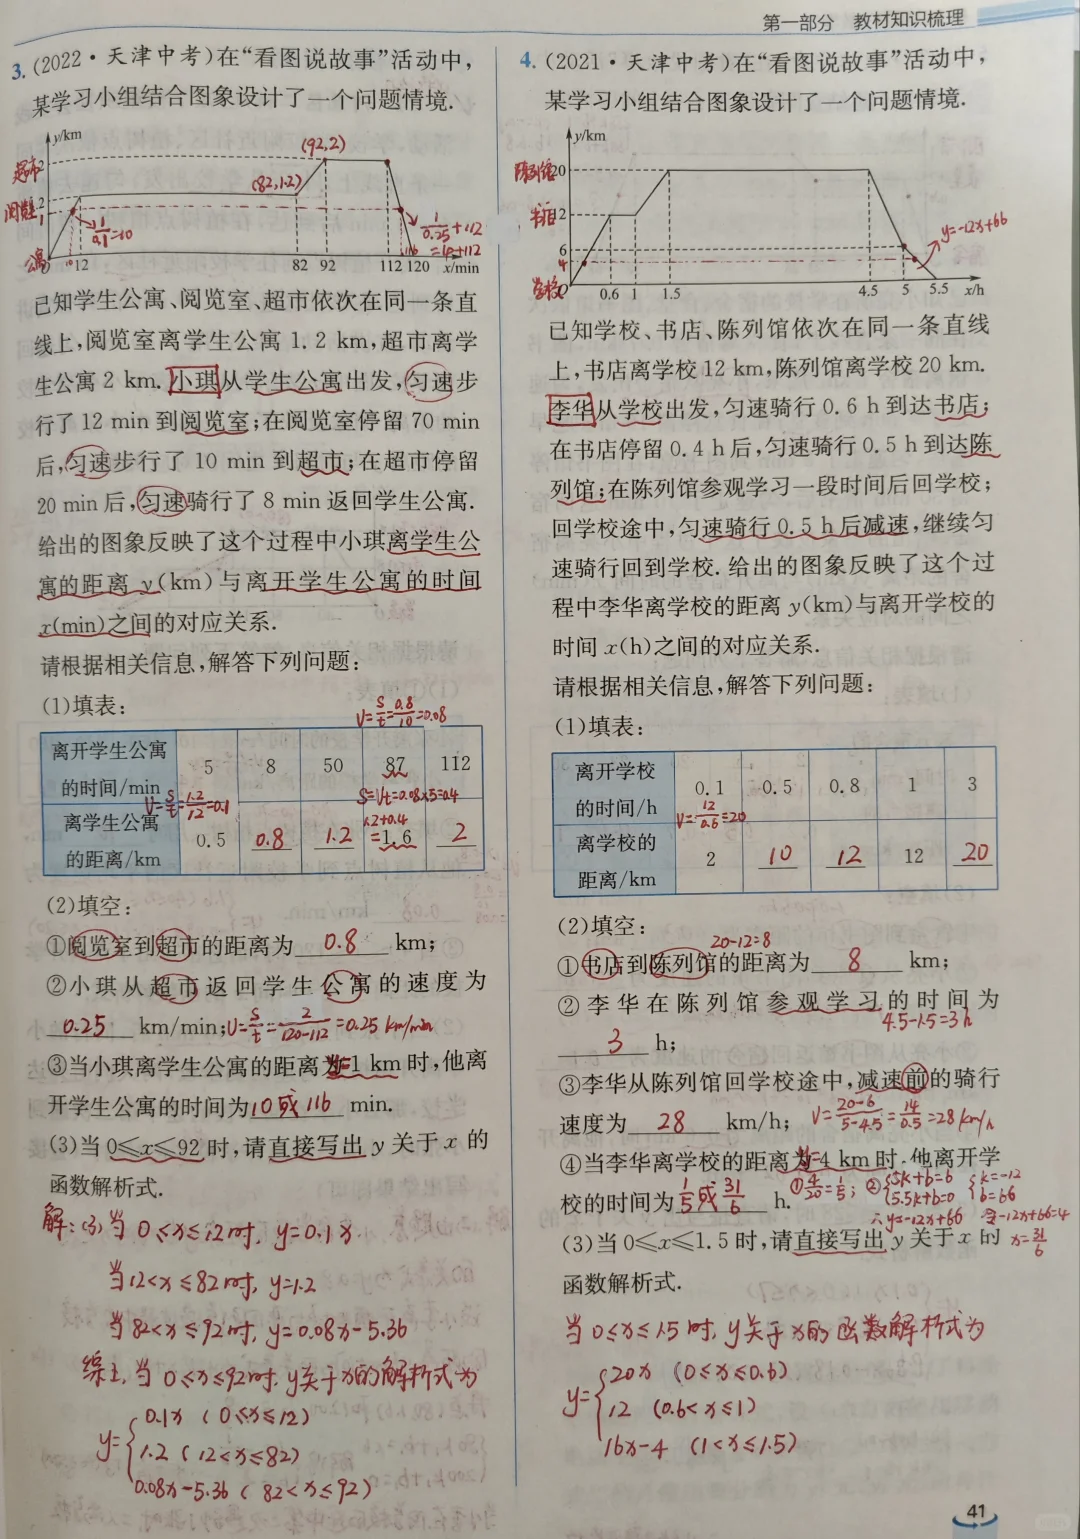 第一部分 教材知识梳理
3. (2022·天津中考)在“看图说故事”活动中,
某学习小组结合图象设计了一个问题情境.
y/km
(92,2)
超市 2
(82,1.2)
1.2
阅览室 1
1/0.1=10
1/0.25+112
=116
公寓 O 12 82 92 112 120 x/min
已知学生公寓、阅览室、超市依次在同一条直
线上,阅览室离学生公寓 1.2 km,超市离学
生公寓 2 km.小琪从学生公寓出发,匀速步
行了 12 min 到阅览室;在阅览室停留 70 min
后,匀速步行了 10 min 到超市;在超市停留
20 min 后,匀速骑行了 8 min 返回学生公寓.
给出的图象反映了这个过程中小琪离学生公
寓的距离 y(km)与离开学生公寓的时间
x(min)之间的对应关系.
请根据相关信息,解答下列问题:
(1)填表:
V=S/t=0.8/10=0.08
离开学生公寓的时间/min 5 8 50 87 112
V=S/t=1.2/12=0.1
S=Vt=0.08×5=0.4
1.2+0.4
离学生公寓的距离/km 0.5 0.8 1.2 =1.6 2
(2)填空:
①阅览室到超市的距离为 0.8 km;
②小琪从超市返回学生公寓的速度为
0.25 km/min; V=S/t=2/120-112=0.25 km/min
③当小琪离学生公寓的距离为 1 km 时,他离
y=
开学生公寓的时间为 10或116 min.
(3)当 0≤x≤92 时,请直接写出 y 关于 x 的
函数解析式.
解:(3)当 0≤x≤12时, y=0.1x
当12<x≤82时, y=1.2
当82<x≤92时, y=0.08x-5.36
综上,当 0≤x≤92时, y关于x的解析式为
y={0.1x (0≤x≤12)
1.2 (12<x≤82)
0.08x-5.36 (82<x≤92)
4. (2021·天津中考)在“看图说故事”活动中,
某学习小组结合图象设计了一个问题情境.
y/km
陈列馆 20
书店 12
y=-12x+66
6
4
学校 O 0.6 1 1.5 4.5 5 5.5 x/h
已知学校、书店、陈列馆依次在同一条直线
上,书店离学校 12 km,陈列馆离学校 20 km.
李华从学校出发,匀速骑行 0.6 h 到达书店;
在书店停留 0.4 h 后,匀速骑行 0.5 h 到达陈
列馆;在陈列馆参观学习一段时间后回学校;
回学校途中,匀速骑行 0.5 h 后减速,继续匀
速骑行回到学校.给出的图象反映了这个过
程中李华离学校的距离 y(km)与离开学校的
时间 x(h)之间的对应关系.
请根据相关信息,解答下列问题:
(1)填表:
离开学校的时间/h 0.1 0.5 0.8 1 3
V=12/0.6=20
离学校的距离/km 2 10 12 12 20
(2)填空:
20-12=8
①书店到陈列馆的距离为 8 km;
②李华在陈列馆参观学习的时间为
4.5-1.5=3 h
3 h;
③李华从陈列馆回学校途中,减速前的骑行
速度为 28 km/h; V=20-6/5-4.5=14/0.5=28 km/h
y=
④当李华离学校的距离为 4 km 时,他离开学
校的时间为 1/5或31/6 h. ①4/20=1/5; ②{5k+b=6 5.5k+b=0 {k=-12 b=66
∴y=-12x+66 令-12x+66=4
x=31/6
(3)当 0≤x≤1.5 时,请直接写出 y 关于 x 的
函数解析式.
当0≤x≤1.5时, y关于x的函数解析式为
y={20x (0≤x≤0.6)
12 (0.6<x≤1)
16x-4 (1<x≤1.5)
41